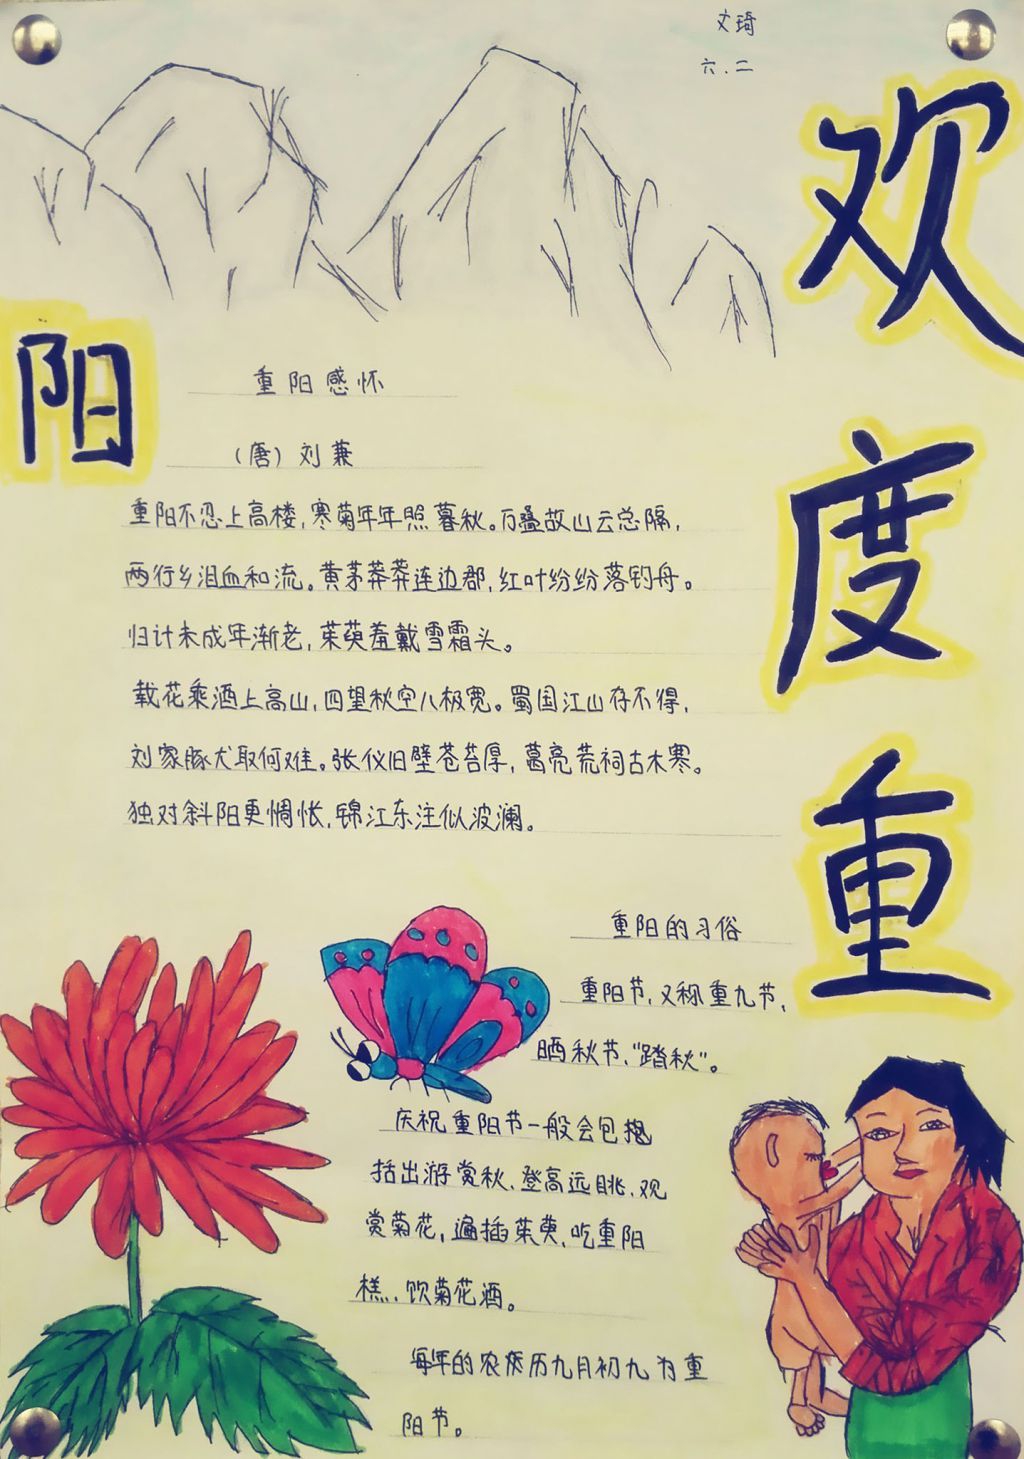 文琦
六.二
欢度重阳
重阳感怀
(唐)刘兼
重阳不忍上高楼,寒菊年年照暮秋。万叠故山云总隔,
两行乡泪血和流。黄茅莽莽连边郡,红叶纷纷落钓舟。
归计未成年渐老,茱萸羞戴雪霜头。
载花乘酒上高山,四望秋空八极宽。蜀国江山存不得,
刘家豚犬取何难。张仪旧壁苍苔厚,葛亮荒祠古木寒。
独对斜阳更惆怅,锦江东注似波澜。
重阳的习俗
重阳节,又称重九节,
晒秋节、"踏秋"。
庆祝重阳节一般会包抱
括出游赏秋、登高远眺、观
赏菊花,遍插茱萸、吃重阳
糕、饮菊花酒。
每年的农历九月初九为重
阳节。